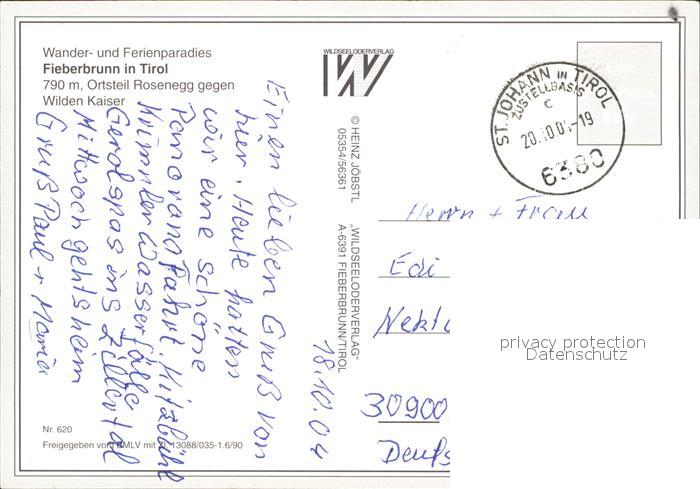 Wander- und Ferienparadies
Fieberbrunn in Tirol
790 m, Ortsteil Rosenegg gegen
Wilden Kaiser
WILDSEELODERVERLAG
W
© HEINZ JÖBSTL
05354/56361
„WILDSEELODERVERLAG"
A-6391 FIEBERBRUNN/TIROL
ST. JOHANN IN TIROL
ZUSTELLBASIS
C
20.10.04-19
6380
18.10.04
Einen lieben Gruß von
hier. Heute hatten
wir eine schöne
Panorama Fahrt. Kitzbühl
Krimmler Wasserfälle
Gerolspas ins Zillertal
Mittwoch gehts heim
Gruß Paul + Maria
Herrn + Frau
Edi
30900
Nr. 620
Freigegeben vom BMLV mit Zl. 13088/035-1.6/90
privacy protection
Datenschutz